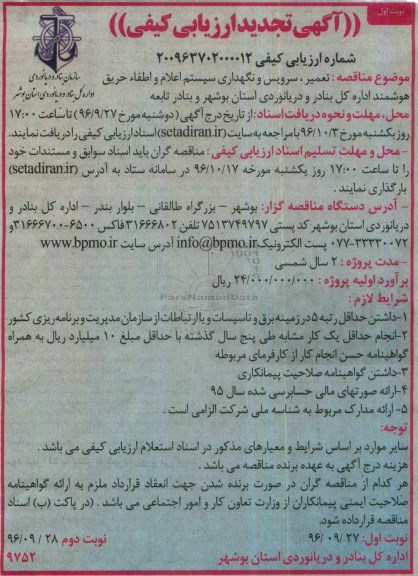 نوبت اول
((آگهی تجدید ارزیابی کیفی))
سازمان بنادر و دریانوردی
اداره کل بنادر و دریانوردی استان بوشهر
شماره ارزیابی کیفی ۲۰۰۹۶۳۷۰۲۰۰۰۰۱۲
موضوع مناقصه : تعمیر ، سرویس و نگهداری سیستم اعلام و اطفاء حریق
هوشمند اداره کل بنادر و دریانوردی استان بوشهر و بنادر تابعه
محل، مهلت و نحوه دریافت اسناد: از تاریخ درج آگهی (دوشنبه مورخ ۹۶/۹/۲۷) تا ساعت ۱۷:۰۰
روز یکشنبه مورخ ۹۶/۱۰/۳ با مراجعه به سایت (setadiran.ir) اسناد ارزیابی کیفی را دریافت نمایند.
- محل و مهلت تسلیم اسناد ارزیابی کیفی : مناقصه گران باید اسناد سوابق و مستندات خود
را تا ساعت ۱۷:۰۰ روز یکشنبه مورخه ۹۶/۱۰/۱۷ در سامانه ستاد به آدرس (setadiran.ir)
بارگذاری نمایند .
- آدرس دستگاه مناقصه گزار: بوشهر - بزرگراه طالقانی - بلوار بندر - اداره کل بنادر و
دریانوردی استان بوشهر کد پستی ۷۵۱۳۷۴۹۷۹۷ تلفن ۳۱۶۶۶۸۰۲ فاکس ۶۵۰۰-۳۱۶۶۶۷۰۰ و
۰۷۷-۳۳۳۳۰۰۷۲ پست الکترونیک info@bpmo.ir آدرس سایت www.bpmo.ir
- مدت پروژه : ۲ سال شمسی
برآورد اولیه پروژه : ۲۴/۰۰۰/۰۰۰/۰۰۰ ریال
شرایط لازم :
۱-داشتن حداقل رتبه ۵ در زمینه برق و تاسیسات و یا ارتباطات از سازمان مدیریت و برنامه ریزی کشور
۲-انجام حداقل یک کار مشابه طی پنج سال گذشته با حداقل مبلغ ۱۰ میلیارد ریال به همراه
گواهینامه حسن انجام کار از کارفرمای مربوطه
۳-داشتن گواهینامه صلاحیت پیمانکاری
۴-ارائه صورتهای مالی حسابرسی شده سال ۹۵
۵- ارائه مدارک مربوط به شناسه ملی شرکت الزامی است .
توجه:
سایر موارد بر اساس شرایط و معیارهای مذکور در اسناد استعلام ارزیابی کیفی می باشد .
هزینه درج آگهی به عهده برنده مناقصه می باشد .
هر کدام از مناقصه گران در صورت برنده شدن جهت انعقاد قرارداد ملزم به ارائه گواهینامه
صلاحیت ایمنی پیمانکاران از وزارت تعاون کار و امور اجتماعی می باشد . (در پاکت (ب) اسناد
مناقصه قرارداده شود.
نوبت اول: ۲۷ /۰۹ /۹۶ نوبت دوم ۲۸ /۹۶/۰۹
اداره کل بنادر و دریانوردی استان بوشهر ۹۷۵۲